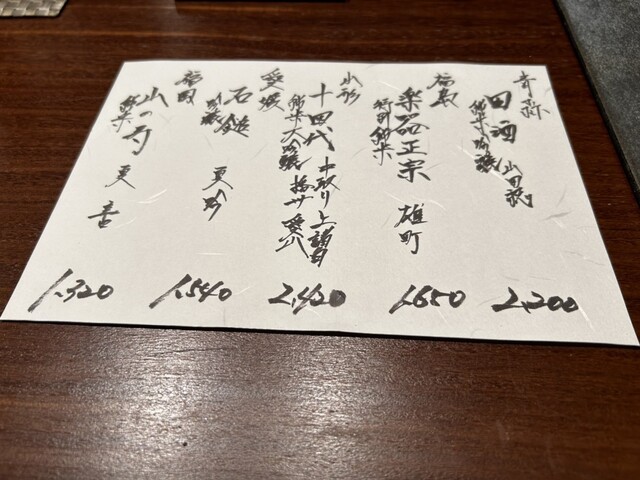 青森
田酒
純米大吟醸 山田錦
2,200
福島
楽器正宗 雄町
特別純米
1,650
山形
十四代 中取り上諸白
純米大吟醸 播州 愛山
2,420
愛媛
石鎚 夏吟
吟醸
1,540
福岡
山の
純米
夏
1,320